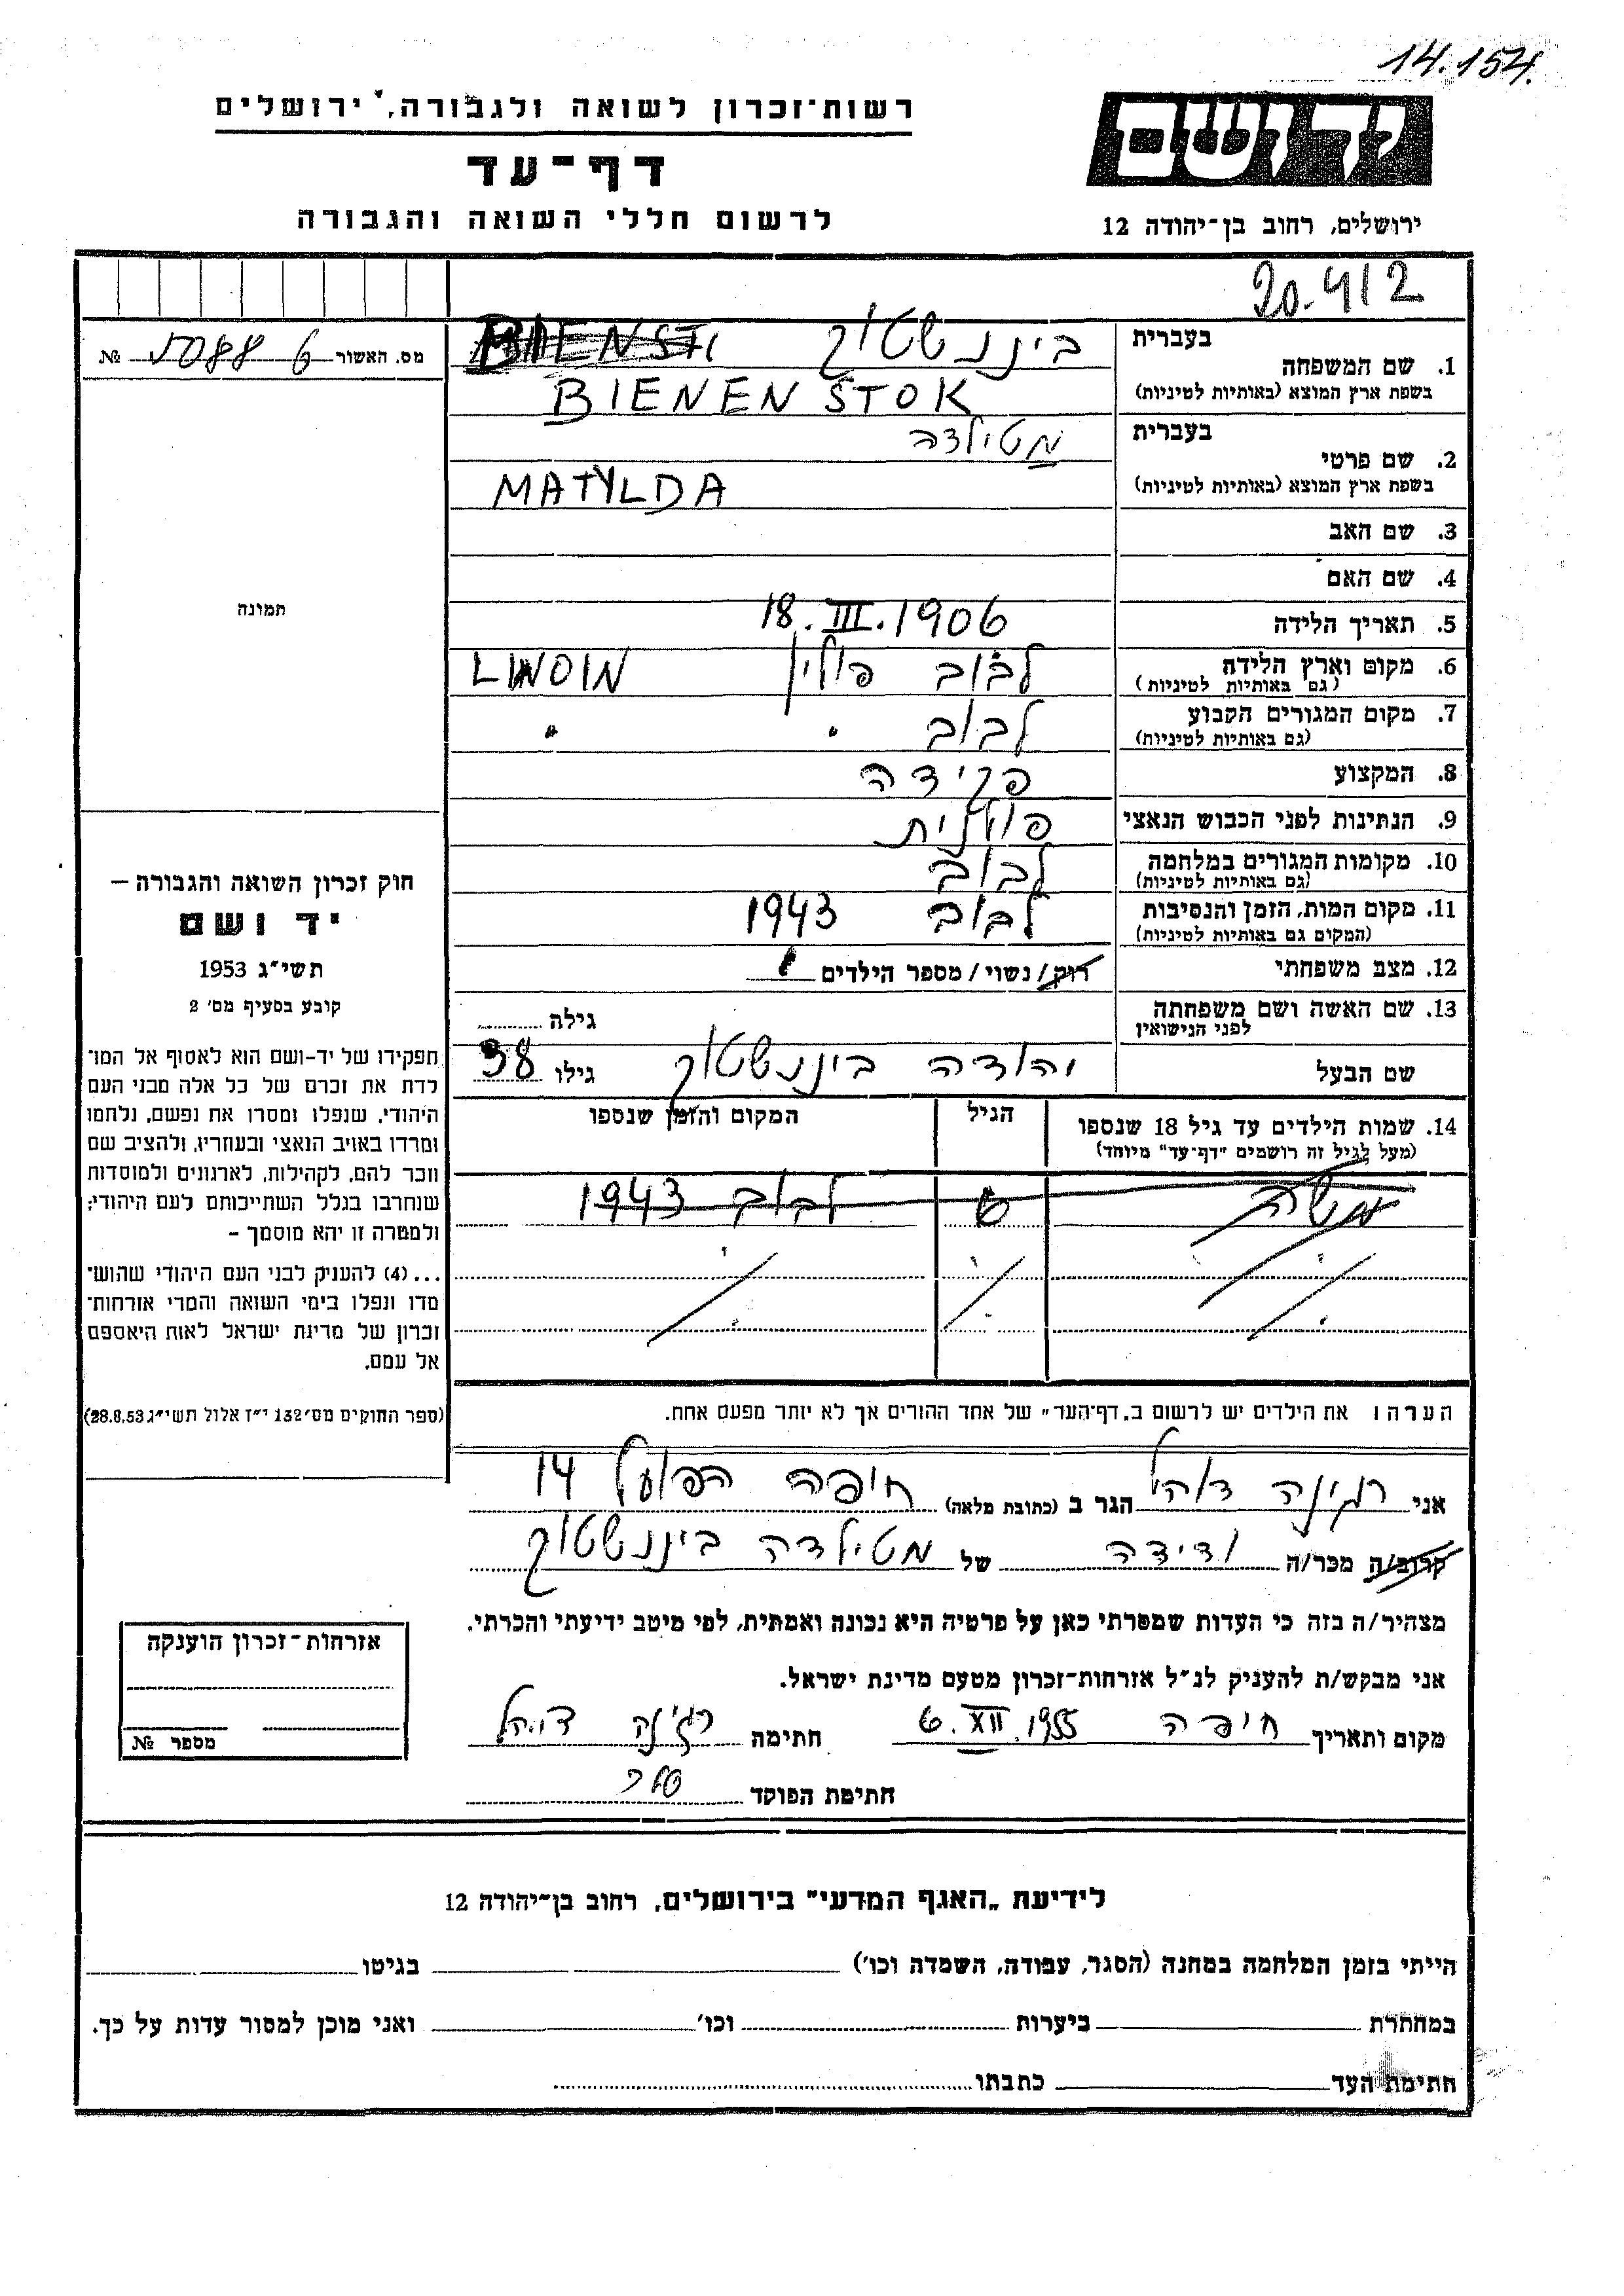 14.154.
רשות־זכרון לשואה ולגבורה, ירושלים
דף־עד
לרשום חללי השואה והגבורה
יד ושם
ירושלים, רחוב בן־יהודה 12
20.412
מס. האשור № 5088 6
1. שם המשפחה בעברית ביננשטוק
בשפת ארץ המוצא (באותיות לטיניות) BIENENSTOK
2. שם פרטי בעברית מטילדה
בשפת ארץ המוצא (באותיות לטיניות) MATYLDA
3. שם האב
4. שם האם
5. תאריך הלידה 18.III.1906
6. מקום וארץ הלידה לבוב פולין
(גם באותיות לטיניות)
7. מקום המגורים הקבוע לבוב " "
(גם באותיות לטיניות)
8. המקצוע פקידה
9. הנתינות לפני הכבוש הנאצי פולנית
10. מקומות המגורים במלחמה לבוב
(גם באותיות לטיניות)
11. מקום המות, הזמן והנסיבות לבוב 1943
(המקום גם באותיות לטיניות)
12. מצב משפחתי רוק/נשוי/מספר הילדים 1
13. שם האשה ושם משפחתה גילה
לפני הנישואין
שם הבעל יהודה ביננשטוק גילו 38
14. שמות הילדים עד גיל 18 שנספו הגיל המקום והזמן שנספו
(מעל לגיל זה רושמים "דף־עד" מיוחד)
משה 6 לבוב 1943
הערה: את הילדים יש לרשום ב„דף־העד" של אחד ההורים אך לא יותר מפעם אחת.
תמונה
חוק זכרון השואה והגבורה –
יד ושם
תשי"ג 1953
קובע בסעיף מס' 2
תפקידו של יד-ושם הוא לאסוף אל המו־
לדת את זכרם של כל אלה מבני העם
היהודי, שנפלו ומסרו את נפשם, נלחמו
ומרדו באויב הנאצי ובעוזריו, ולהציב שם
וזכר להם, לקהילות, לארגונים ולמוסדות
שנחרבו בגלל השתייכותם לעם היהודי;
ולמטרה זו יהא מוסמך –
...(4) להעניק לבני העם היהודי שהוש־
מדו ונפלו בימי השואה והמרי אזרחות־
זכרון של מדינת ישראל לאות היאספם
אל עמם.
(ספר החוקים מס' 132 י"ז אלול תשי"ג 28.8.53)
אני רגינה הגר ב (כתובת מלאה) חיפה הפועל 14
קרוב/ה מכר/ה ידידה של מטילדה ביננשטוק
מצהיר/ה בזה כי העדות שמסרתי כאן על פרטיה היא נכונה ואמתית, לפי מיטב ידיעתי והכרתי.
אני מבקש/ת להעניק לנ"ל אזרחות־זכרון מטעם מדינת ישראל.
מקום ותאריך חיפה 6.XII.1955 חתימה רגינה
חתימת הפוקד
אזרחות־זכרון הוענקה
מספר №
לידיעת „האגף המדעי" בירושלים, רחוב בן־יהודה 12
הייתי בזמן המלחמה במחנה (הסגר, עבודה, השמדה וכו') בגיטו
במחתרת ביערות וכו' ואני מוכן למסור עדות על כך.
חתימת העד כתבתו